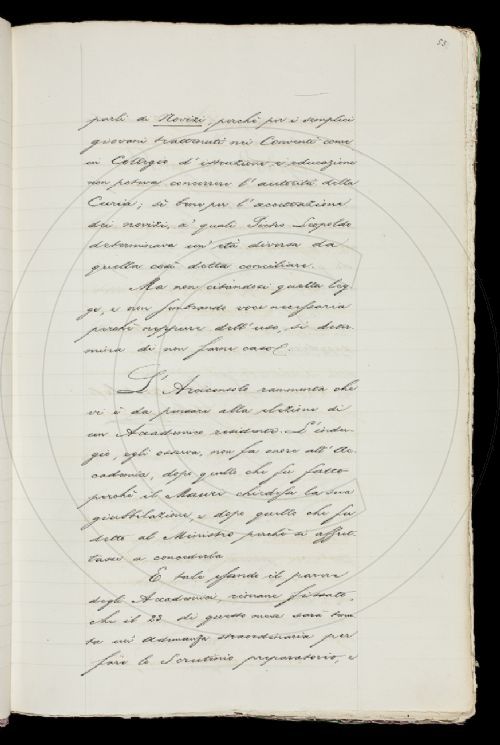 55
parli di Novizi, perchè per i semplici
giovani trattenuti nei Conventi come
in Collegio d'istruzione e educazione
non poteva concorrere l'autorità della
Curia; sì bene per l'accettazione
dei novizi, a' quali Pietro Leopoldo
determinava un'età diversa da
quella così detta conciliare.
Ma non citandosi quella leg-
ge, e non sembrando voce necessaria
perchè neppure dell'uso, si deter-
mina di non farne caso.
L'Arciconsolo rammenta che
vi è da pensare alla elezione di
un Accademico residente. L'indu-
gio, egli osserva, non fa onore all'Ac-
cademia, dopo quello che fu fatto
perchè il Mauri chiedesse la sua
giubbilazione, e dopo quello che fu
detto al Ministro perchè si affret-
tasse a concederla.
E tale essendo il parere
degli Accademici, rimane fissato,
che il 23 di questo mese sarà tenu-
ta un'Adunanza straordinaria per
fare lo Scrutinio preparatorio, e